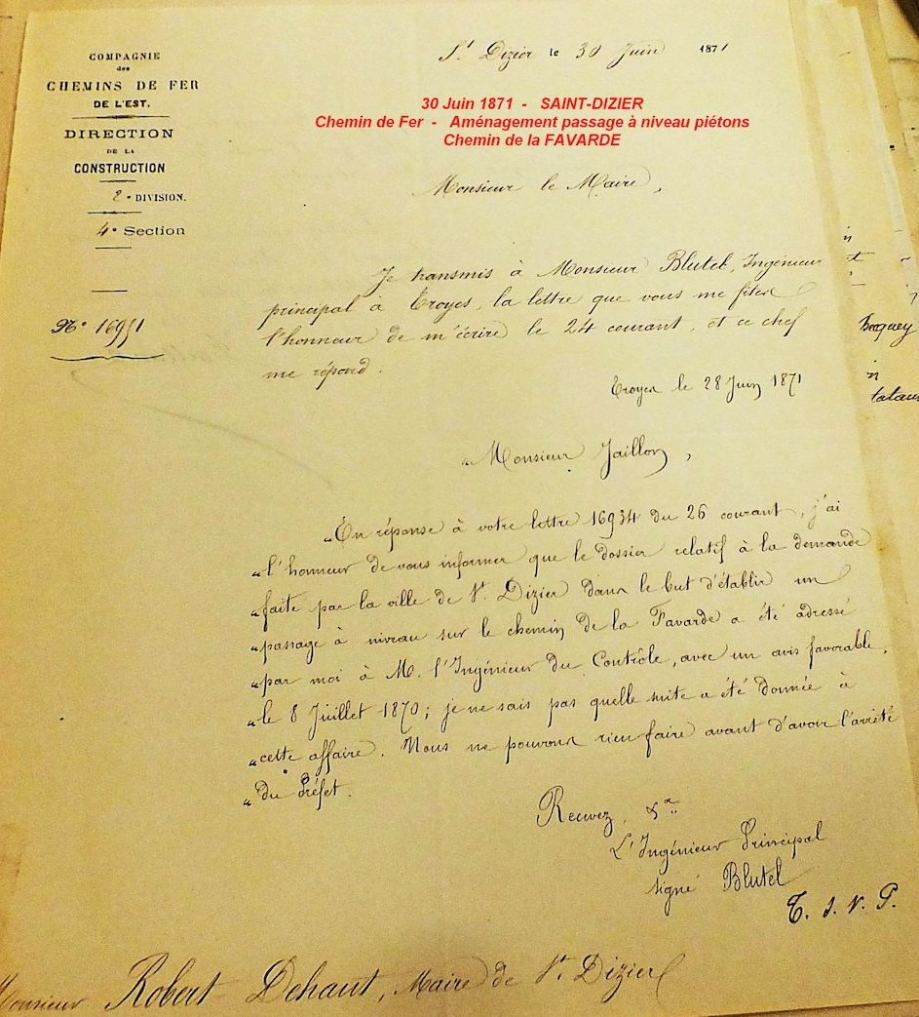 COMPAGNIE
des
CHEMINS DE FER
DE L'EST.
DIRECTION
DE LA
CONSTRUCTION
2e DIVISION.
4e Section
No 16951
St Dizier le 30 Juin 1871
30 Juin 1871 - SAINT-DIZIER
Chemin de Fer - Aménagement passage à niveau piétons
Chemin de la FAVARDE
Monsieur le Maire,
Je transmis à Monsieur Blutel, Ingénieur
principal à Troyes, la lettre que vous me fites
l'honneur de m'écrire le 24 courant, et ce chef
me répond.
Troyes le 28 Juin 1871
"Monsieur Jaillon,
"En réponse à votre lettre 16934 du 26 courant, j'ai
"l'honneur de vous informer que le dossier relatif à la demande
"faite par la ville de St Dizier dans le but d'établir un
"passage à niveau sur le chemin de la Favarde a été adressé
"par moi à M. l'Ingénieur du Contrôle, avec un avis favorable,
"le 8 Juillet 1870; je ne sais pas quelle suite a été donnée à
"cette affaire. Nous ne pouvons rien faire avant d'avoir l'arrêté
"du Préfet.
Recevez, &a
L'Ingénieur Principal
signé Blutel
T. S. V. P.
Monsieur Robert Dehaut, Maire de St Dizier
Becquey